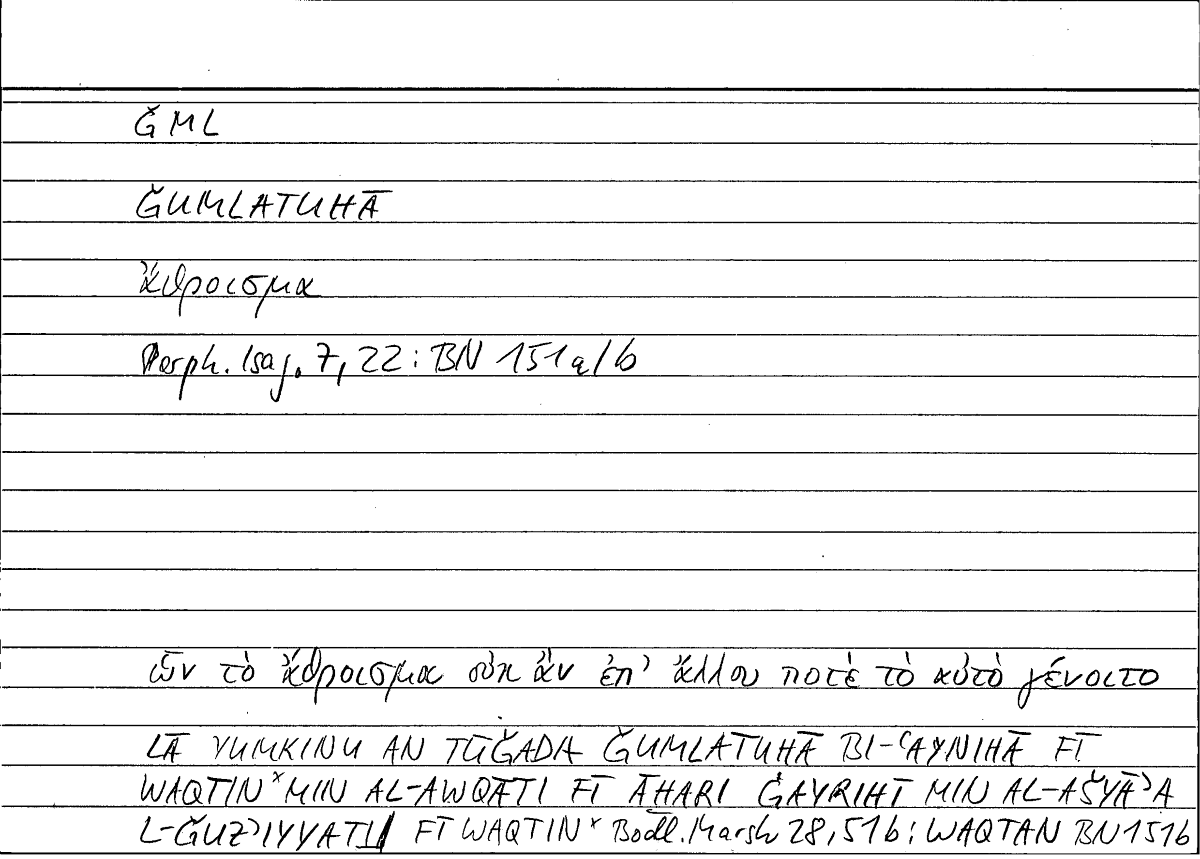 ǦML
ǦUMLATUHĀ
ἄθροισμα
Porph. Isag. 7, 22 : BN 151a/b
ὧν τὸ ἄθροισμα οὐκ ἂν ἐπ’ ἄλλου ποτὲ τὸ αὐτὸ γένοιτο
LĀ YUMKINU AN TŪǦADA ǦUMLATUHĀ BI-ʿAYNIHĀ FĪ
WAQTIN ˣ MIN AL-AWQĀTI FĪ ĀHARI ĠAYRIHĪ MIN AL-AŠYĀʾA
L-ǦUZʾIYYATI/ FĪ WAQTIN ˣ Bodl. Marsh 28, 51b : WAQTAN BN 151b